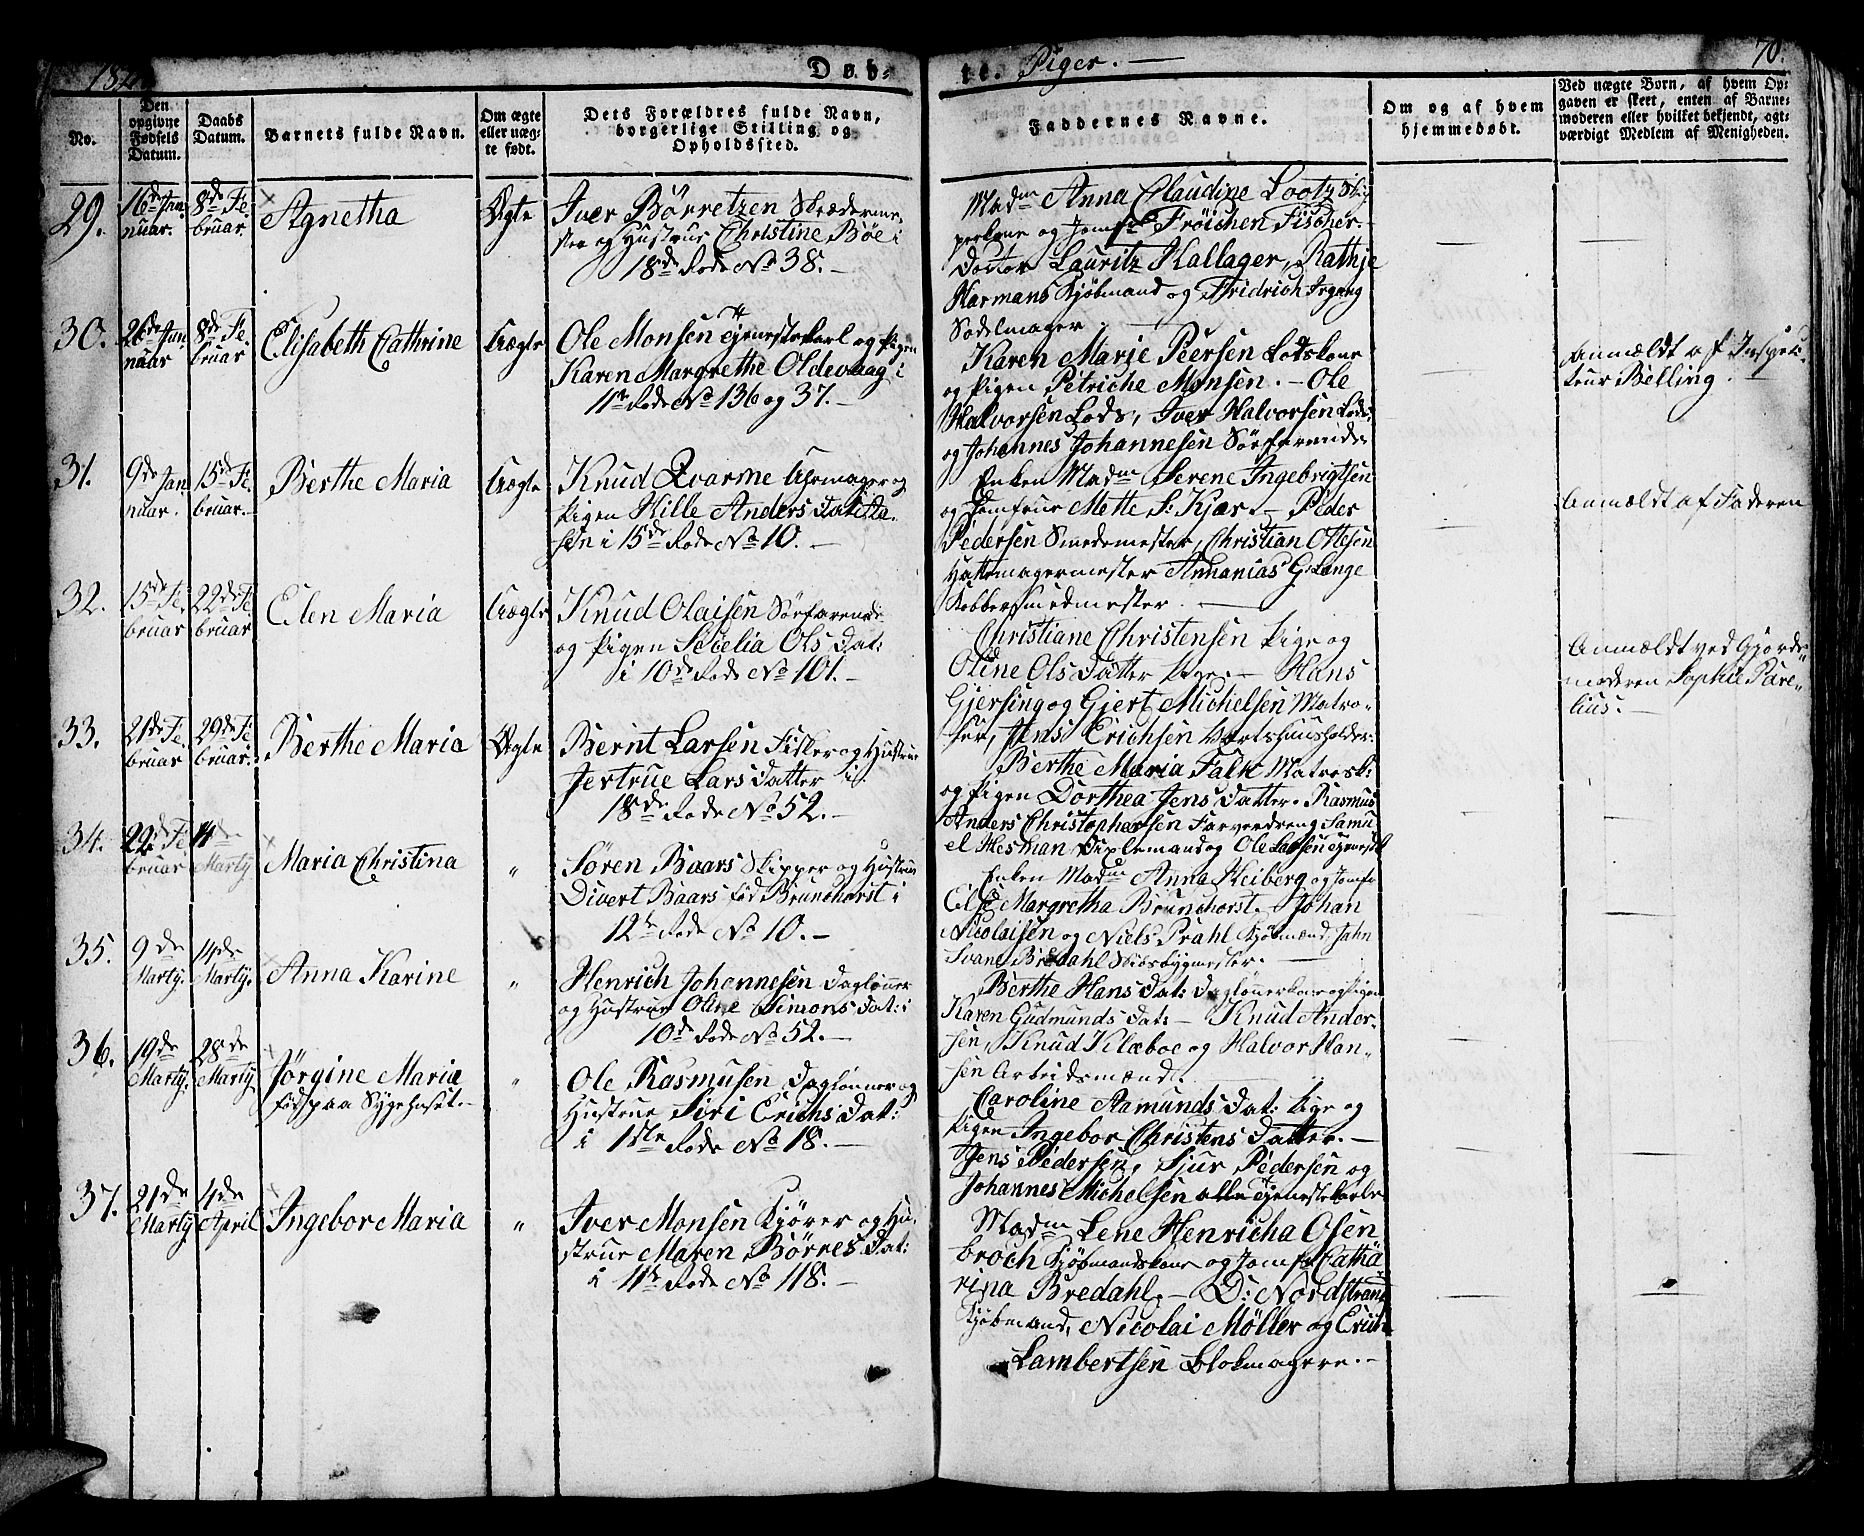 Døb-
te. Piger. —
70.
No.
Den opgivne Fødsels Datum.
Daabs Datum.
Barnets fulde Navn.
Om ægte eller uægte født.
Dets Forældres fulde Navn, borgerlige Stilling og Opholdssted.
Faddernes Navne.
Om og af hvem hjemmedøbt.
Ved uægte Børn, af hvem Op-
gaven er skeet, enten af Barne-
moderen eller hvilket bekjendt, agt-
værdigt Medlem af Menigheden.
29.
16de Januar.
8de Februar.
Agnetha
Ægte
Iver Børretzen Skrædermester og Hustrue Christine Bøe i
18de Rode No 38. —
Madm Anna Claudine Lootz Skipperkone og Jomfr Fröichen Fischer.
Doctor Lauritz Hallager, Rathje
Harmans Kjøbmand og Fridrich Irgang
Sadelmager
30.
26de Januar
8de Februar
Elisabeth Cathrine
Uægte
Ole Monsen Tjenestekarl og Pigen
Karen Margrethe Oldevaag i
11te Rode No 136 og 37. —
Karen Marje Peersen Lodskone
og Pigen Petriche Monsen. — Ole
Halvorsen Lods, Iver Halvorsen Lods:
og Johannes Johannesen Sørfarende
Anmældt af Inspecteur Belling.
31.
9de Januar.
15de Februar.
Berthe Maria
Uægte
Knud Qvarme Uhrmager og
Pigen Hille Anders Datter
i 15de Rode No 10. —
Enken Madm Serene Ingebrigtsen
og Jomfrue Mette S: Kjær. — Peder
Pedersen Smedemester, Christian Ottesen
Hattemagermester Annanias G. Lange
Kobbersmedmester. —
Anmældt af Faderen
32.
15de Februar
22de Februar
Elen Maria
Uægte
Knud Olaisen Sørfarende
og Pigen Secelia Ols Dat:
i 10de Rode No 101. —
Christiane Christensen Pige og
Oline Ols Datter Pige. — Hans
Gjersing og Gjert Michelsen Matroser, Jens Erichsen Vertshuusholder.
Anmældt ved Gjordemoderen Sophie Parelius. —
33.
21de Februar
29de Februar.
Berthe Maria
Ægte
Bernt Larsen Fisker og Hustrue
Jertrue Lars Datter i
18de Rode No 52. —
Berthe Maria Falk Matrosk:
og Pigen Dorthea Jens Datter. Rasmus
Anders Christophersen Farverdreng Samuel Hesman og Ole Larsen
34.
22de Februar
Marty.
Maria Christina
"
Søren Baars Skipper og Hustrue
Divert Baars fød Brunchorst i
12te Rode No 10. —
Enken Madm Anna Heiberg og Jomfr
Else Margretha Brunchorst. Johan
Nicolaisen og Niels Prahl Kjøbmænd, Jahn
Svane Bredahl Skibsbygmester. —
35.
9de Marty.
14de Marty.
Anna Karine
"
Henrich Johannesen Daglønner
og Hustrue Oline Simons Dat: i
10de Rode No 52. —
Berthe Hans Dat: Daglønnerkone og Pigen
Karen Gudmunds Dat: — Knud Andersen, Knud Klæboe og Halvor Hansen Arbeidsmænd.
36.
19de Marty.
28de Marty.
Jørgine Maria
fød paa Sygehuset. —
"
Ole Rasmusen Daglønner og
Hustrue Siri Erichs Dat:
i 1ste Rode No 18. —
Caroline Aamunds Dat: Pige og
Pigen Ingebor Christens Datter. —
Jens Pedersen, Sjur Pedersen og
Johannes Michelsen alle Tjenestekarle
37.
21de Marty
4de April
Ingebor Maria
"
Iver Monsen Kjører og Hustrue Maren Børres Dat:
i 11te Rode No 118. —
Madm Lene Henricha Osenbroch Kjøbmandskone og Jomfr Catharina Bredahl. — D: Nordstrand
Kjøbmand, Nicolai Møller og
Lambertsen Blokmagere. —